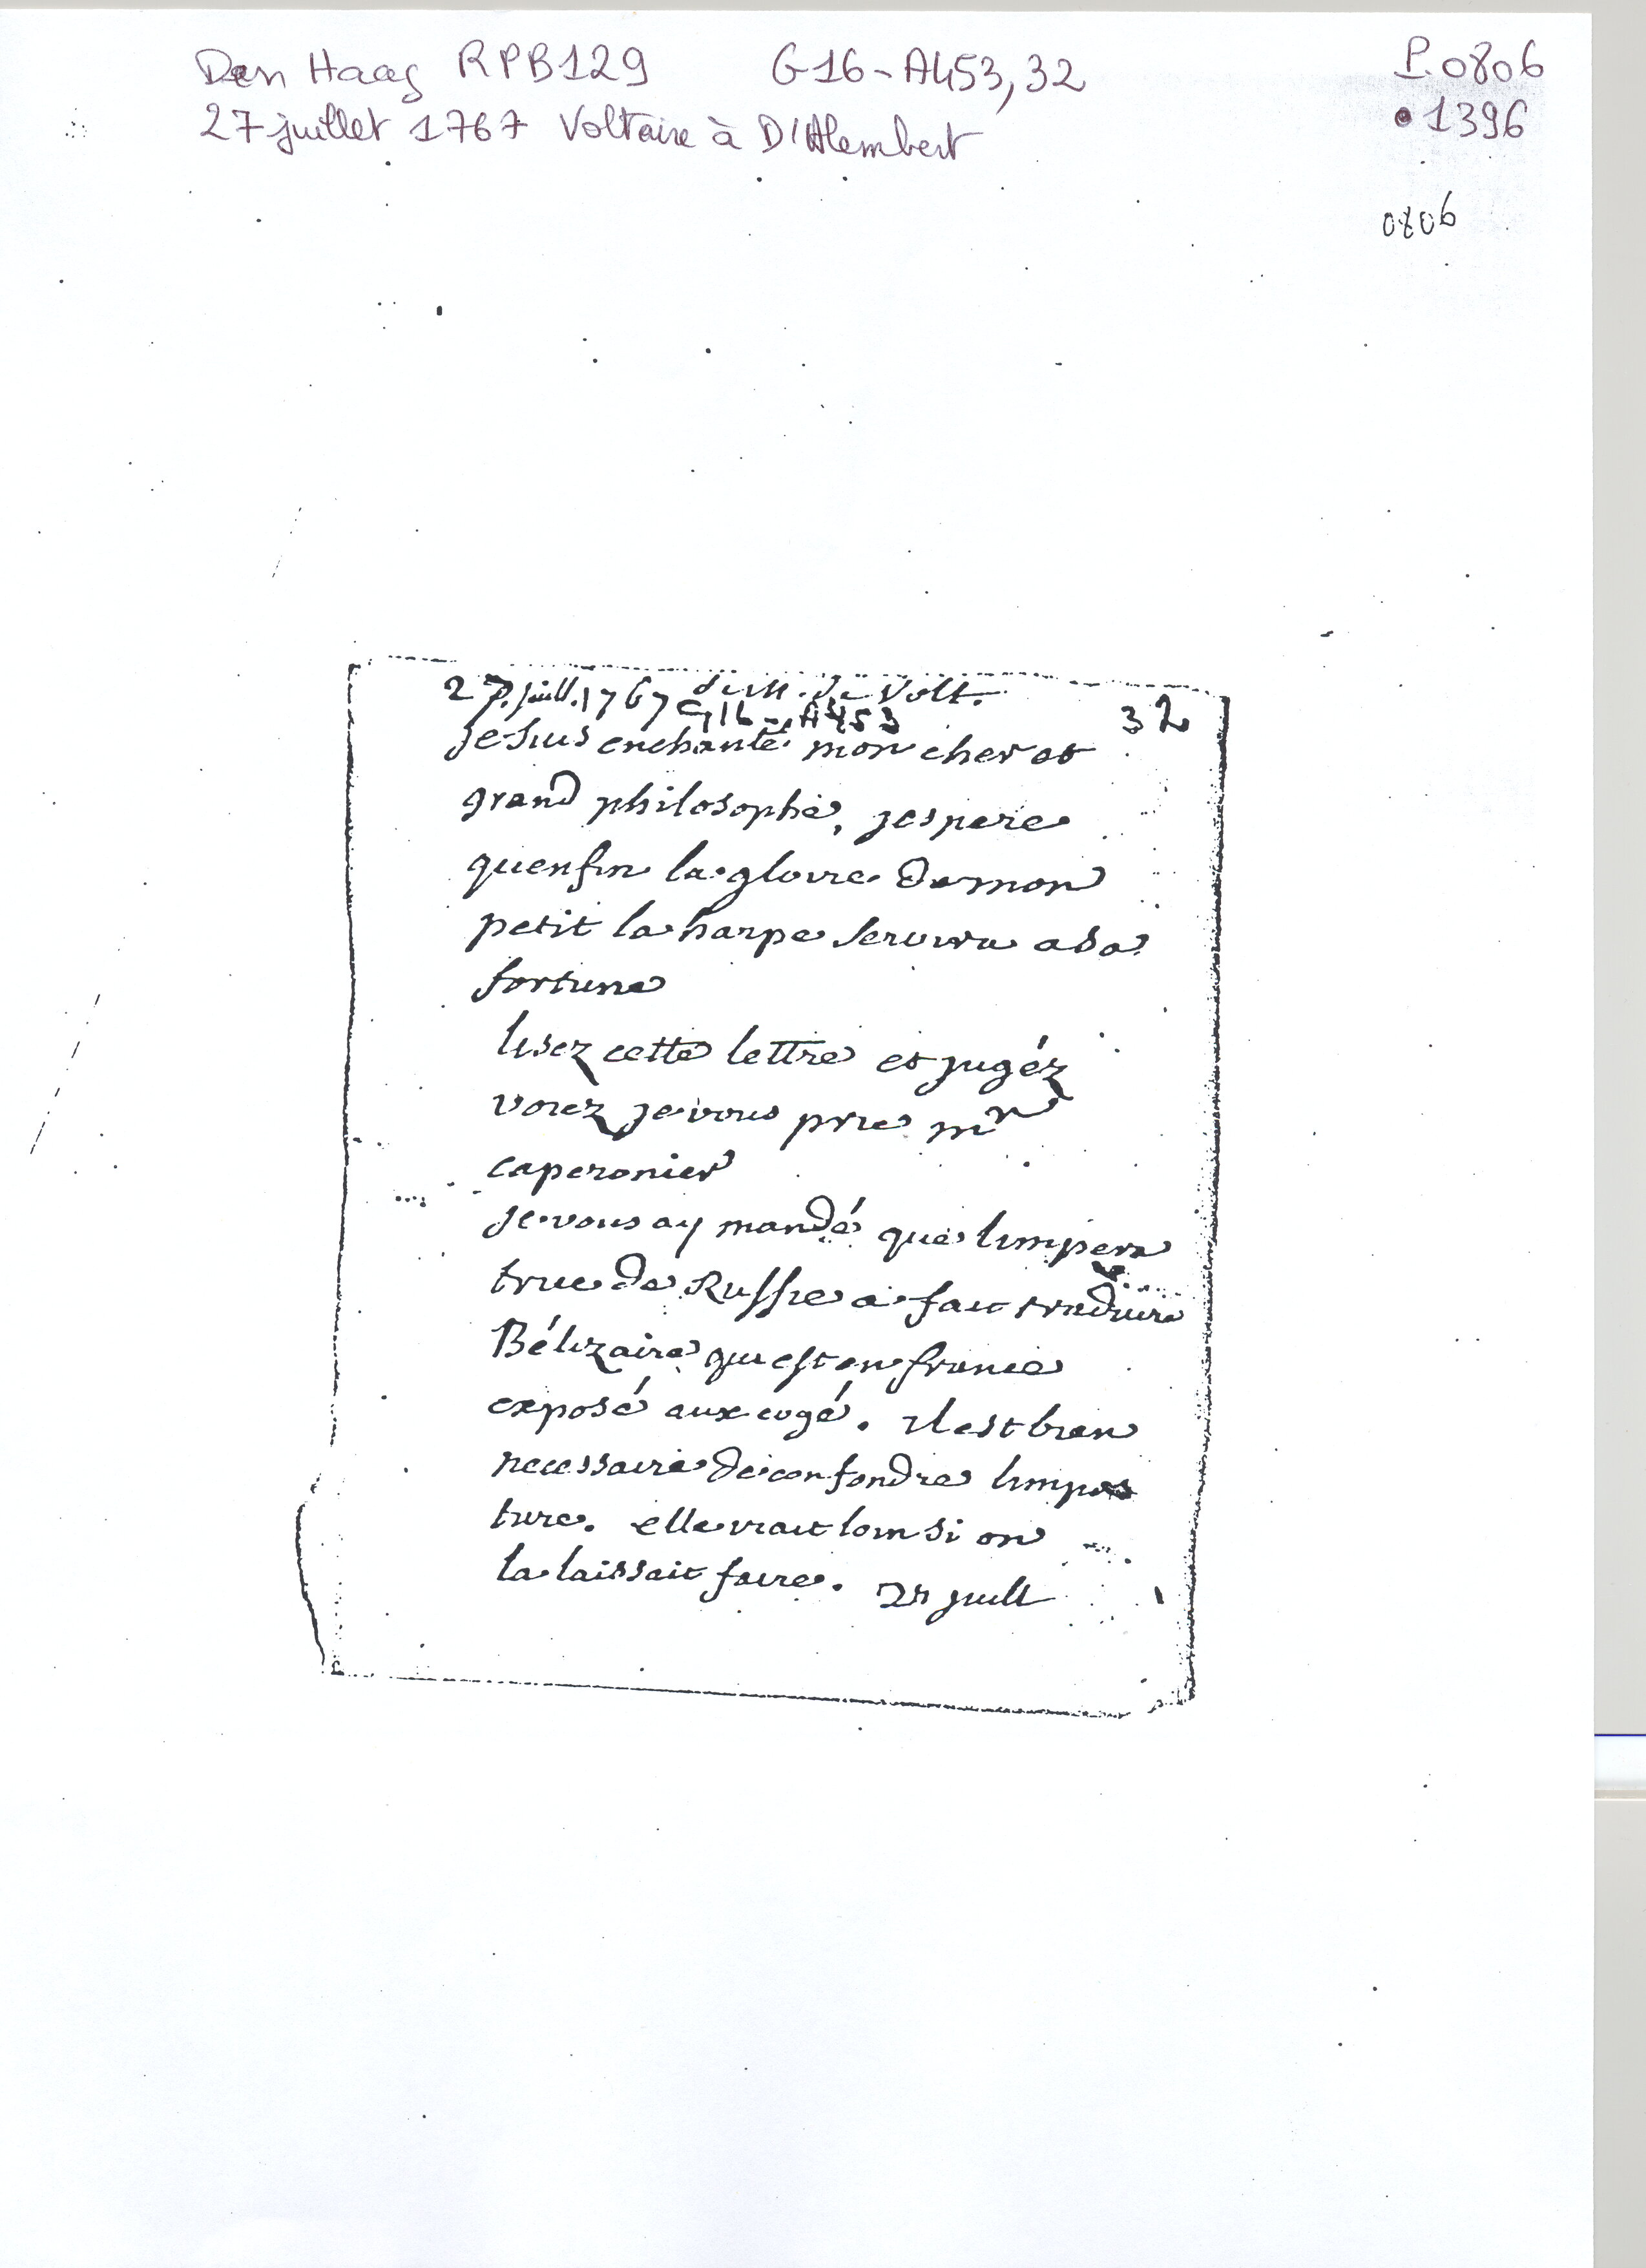 Den Haag RPB129 G16-A453,32 P.0806
27 juillet 1767 Voltaire à D'Alembert • 1396
0806
27. juill. 1767 de M. de Volt. 32
G16-A453
je suis enchanté mon cher et
grand philosophe, jespere
quenfin la gloire de mon
petit la harpe servira a sa
fortune
lisez cette lettre et jugéz
voiez je vous prie mr
caperonier
je vous ay mandé que limpera
trice de Russie a fait traduire
Bélizaire qui est en france
exposé aux cogé. il est bien
necessaire de confondre limpos
ture. elle irait loin si on
la laissait faire. 27 juill